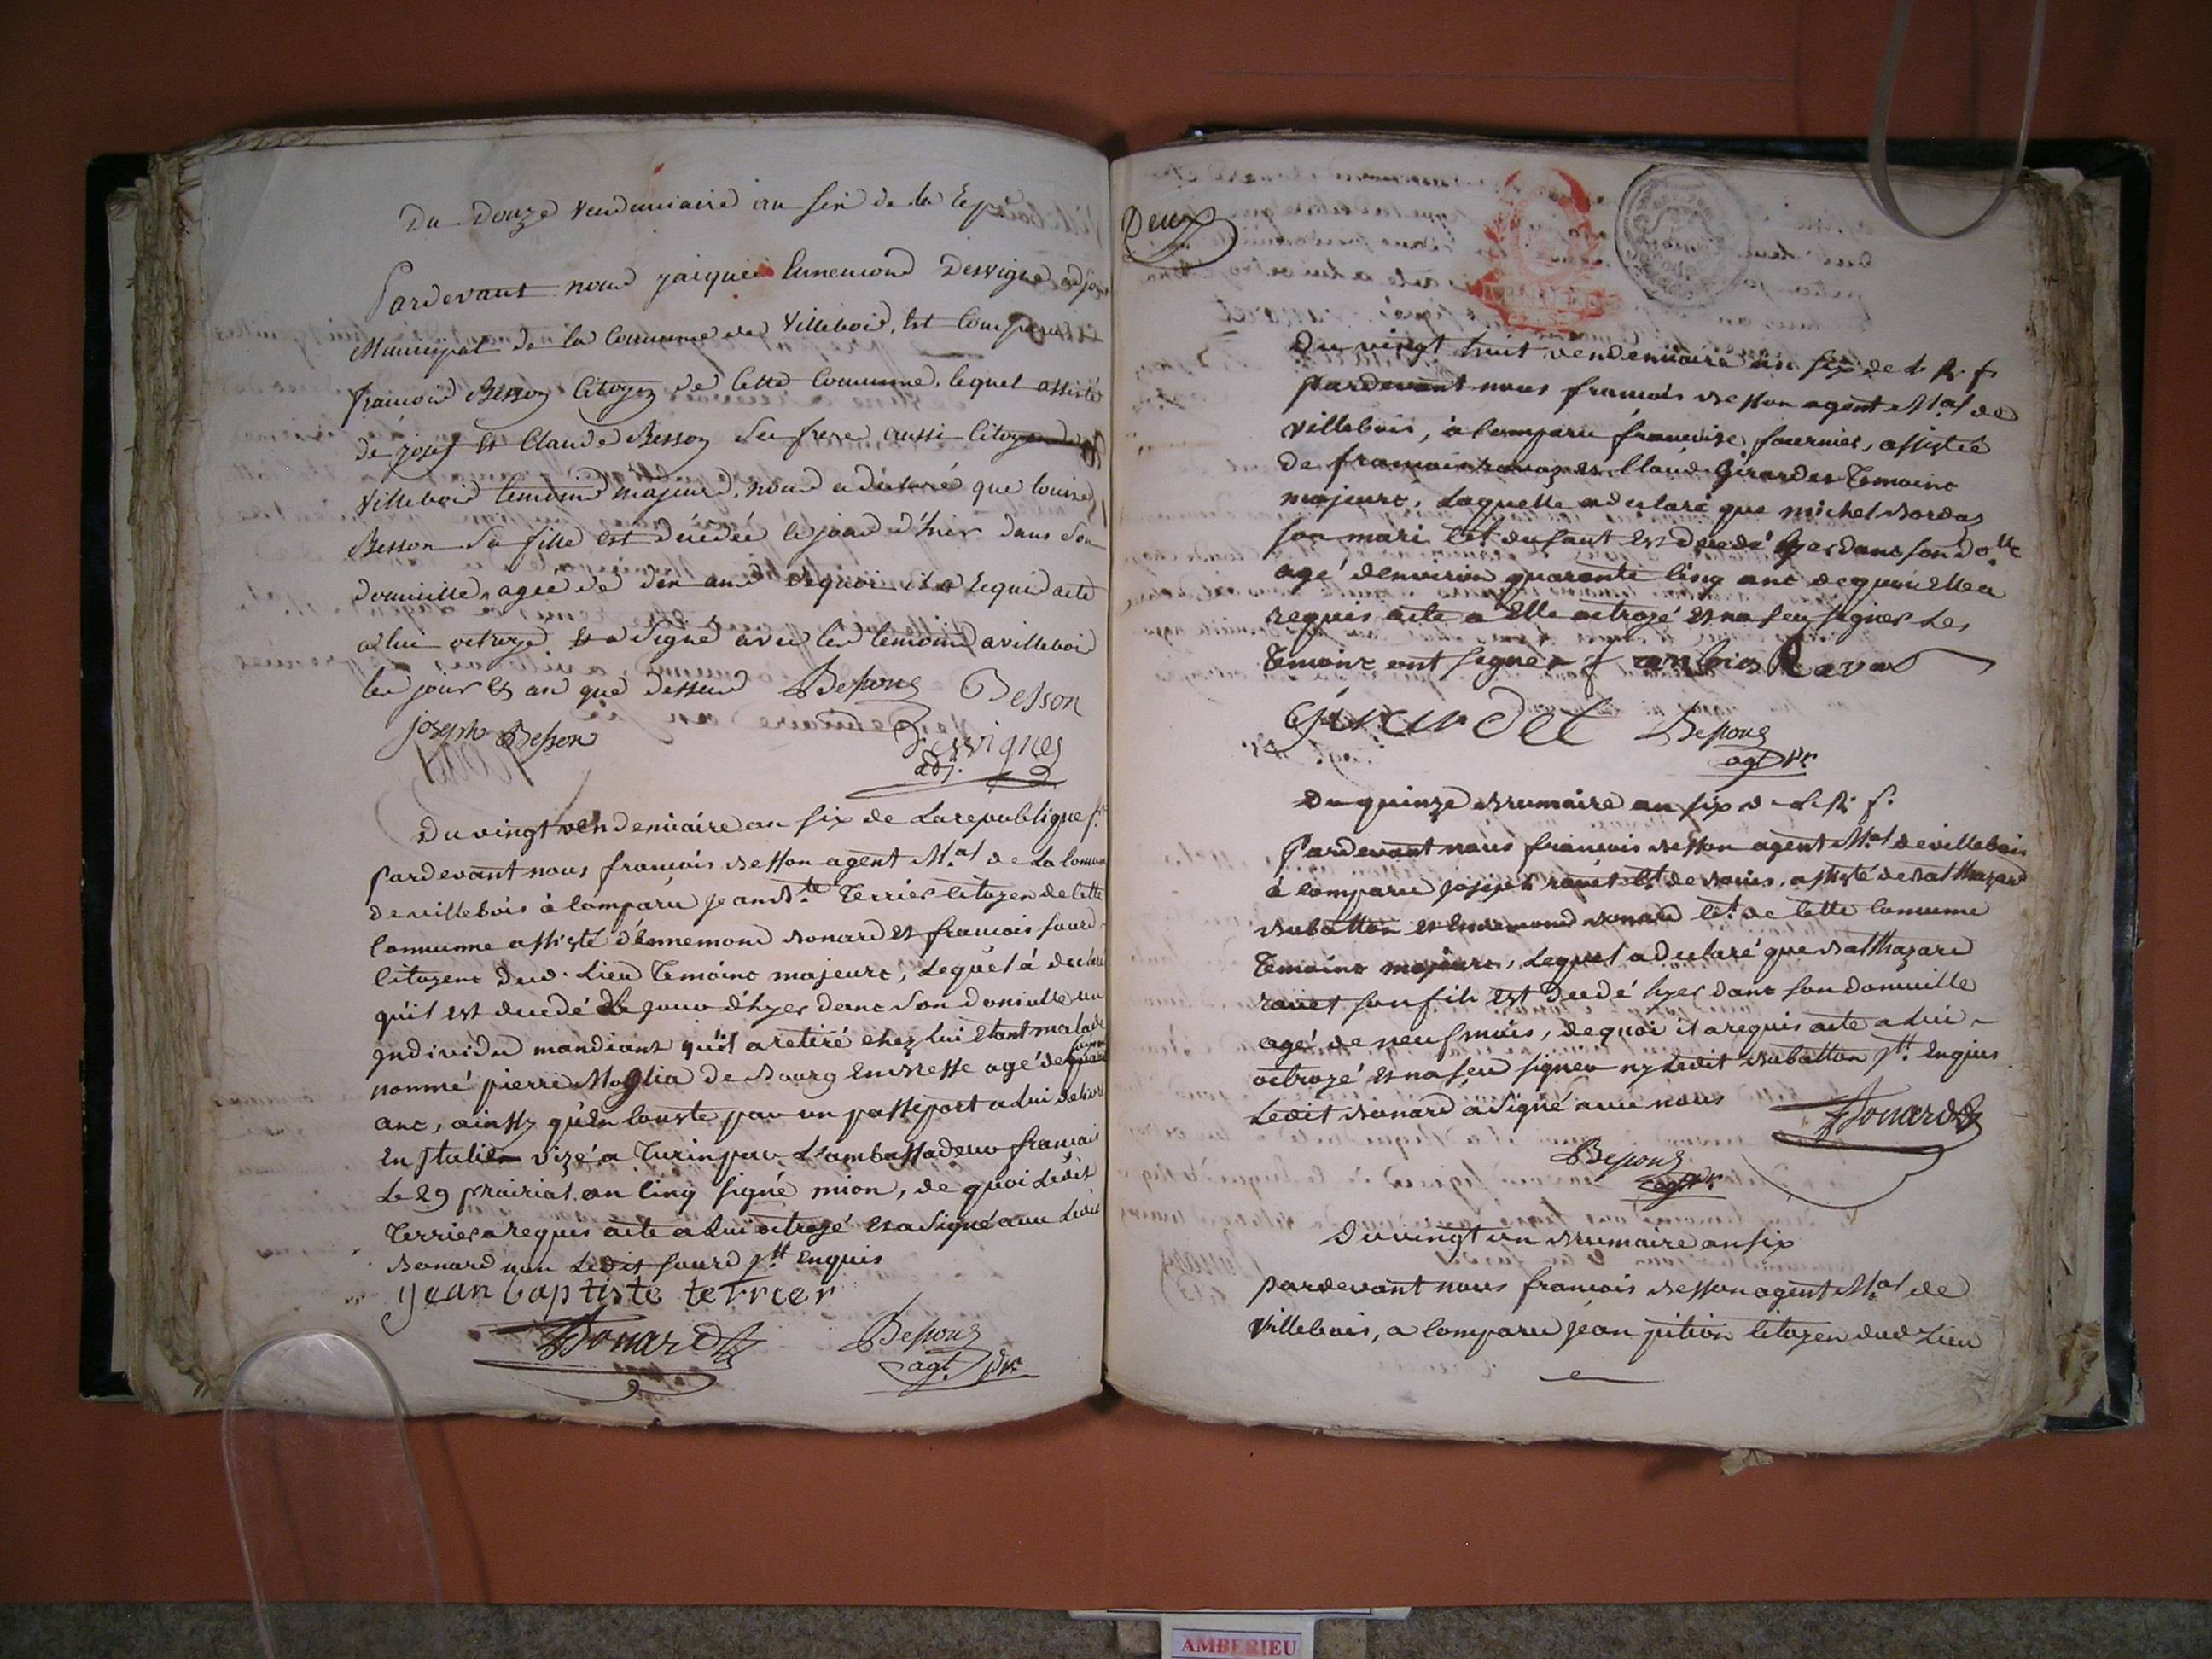 Du douze vendemiaire an six de la Rep.
Pardevant nous jacques Ennemond Dessvigne adjoint
Municipal de la Commune de Villebois, est Comparu
françois Besson Citoyen de Cette Commune, lequel assisté
de josef et Claude Besson Ses frere aussi Citoyens de
Villebois temoins majeurs, nous a déclaré que louise
Besson Sa fille est décédée le jour d'hier dans Son
domicille, agée de dix ans dequoi il a Requis acte
a lui octroyé. Et a Signé avec les temoins a villebois
les jour et an que dessus Besson Besson
joseph Besson
Dessvignes
adj.
Du vingt vendemiaire an six de La republique f.
Pardevant nous francois Besson agent M.al de La Commune
de villebois à Comparu Jean B.te Terrier Citoyen de Cette
Commune assisté d'Ennemond Bonard et francois sourd
Citoyens dud. Lieu Temoins majeurs, Lequel à declaré
qu'il est decedé Le jour d'hyer dans Son domicille un
individu mandiant qu'il a retiré chez lui étant malade
nommé pierre Moglia de Bourg En Bresse agé de
ans, ainssy qu'En Conste par un passeport a Lui delivré
En Italie vizé a Turin par L'ambassadeur francais
Le 29 prairial an Cinq signé mion, de quoi Ledit
Terrier a requis acte a Lui octroyé et a Signé avec Ledit
Bonard non Ledit sourd p.tt Enquis
Jean baptiste terrier
Bonard Besson
agt. pr.
Deux
Du vingt huit vendemiaire an six de L. R. f.
Pardevant nous francois Besson agent M.al de
Villebois, à Comparu françoise fournier, assistée
de francois ravaz et Claude Girardet Temoins
majeurs, Laquelle a declaré que michel Bordaz
son mari Cit. du faut est decedé hyer dans son do.lle
agé d'environ quarante Cinq ans dequoi elle a
requis acte a Elle octroyé et na sçu signer Les
Temoins ont signé francois Ravas
Girardet Besson
agt pr.
Du quinze Brumaire an six d. L. R. f.
Pardevant nous francois Besson agent M.al de villebois
à Comparu joseph ravet Cit de Bouis, assisté de Balthazard
Dubatton et Ennemond Bonard Cit. de Cette Commune
Temoins majeurs, Lequel a declaré que Balthazard
ravet son fils est decedé hyer dans son domicille
agé de neuf mois, dequoi il a requis acte a Lui
octroyé et na sçu signer ny Ledit Dubatton p.tt Enquis
Ledit Bonard a Signé avec nous Bonard
Besson
agt pr.
Du vingt un Brumaire an six
pardevant nous francois Besson agent M.al de
Villebois, a Comparu Jean pition Citoyen dud Lieu
AMBERIEU